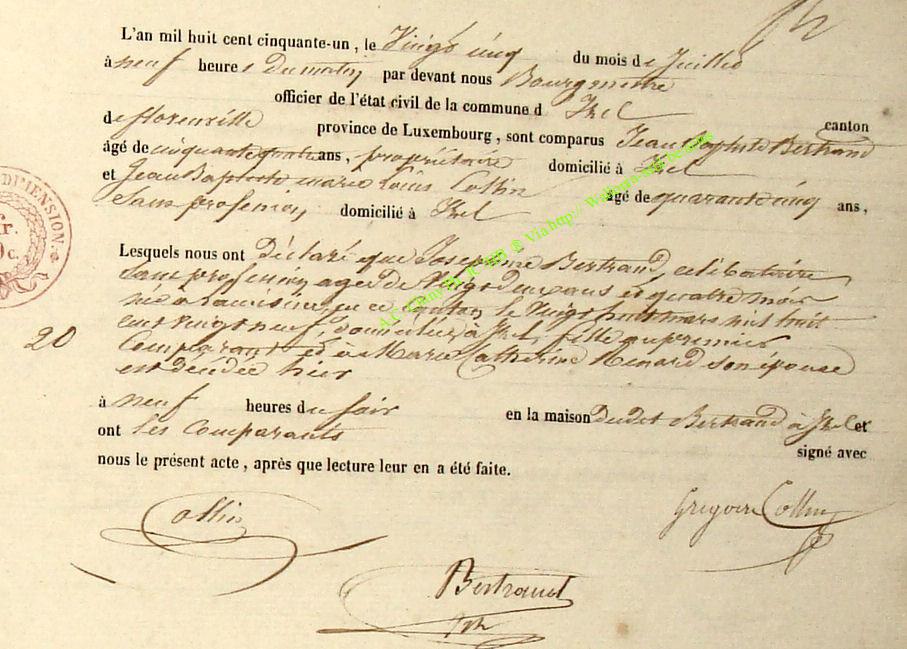 L'an mil huit cent cinquante-un, le Vingt cinq du mois de Juillet
à neuf heures Du matin par devant nous Bourgmestre
officier de l'état civil de la commune d Izel canton
de florenville province de Luxembourg, sont comparus Jean Baptiste Bertrand
âgé de cinquante quatre ans, propriétaire domicilié à Izel
et Jean Baptiste marie Louis Collin âgé de quarante cinq ans,
Sans profession domicilié à Izel
Lesquels nous ont Déclaré que Josephine Bertrand, celibataire
sans profession agée de Vingt Deux ans et quatre mois
née à en ce Canton le Vingt huit mars mil huit
cent vingt neuf Domiciliée à Izel, fille au premier
Comparant et à Marie Catherine Menard son épouse
est Décédée hier
20
à neuf heures du soir en la maison Dudit Bertrand à Izel et
ont les Comparants signé avec
nous le présent acte, après que lecture leur en a été faite.
Collin
Grégoire Collin
Bertrand